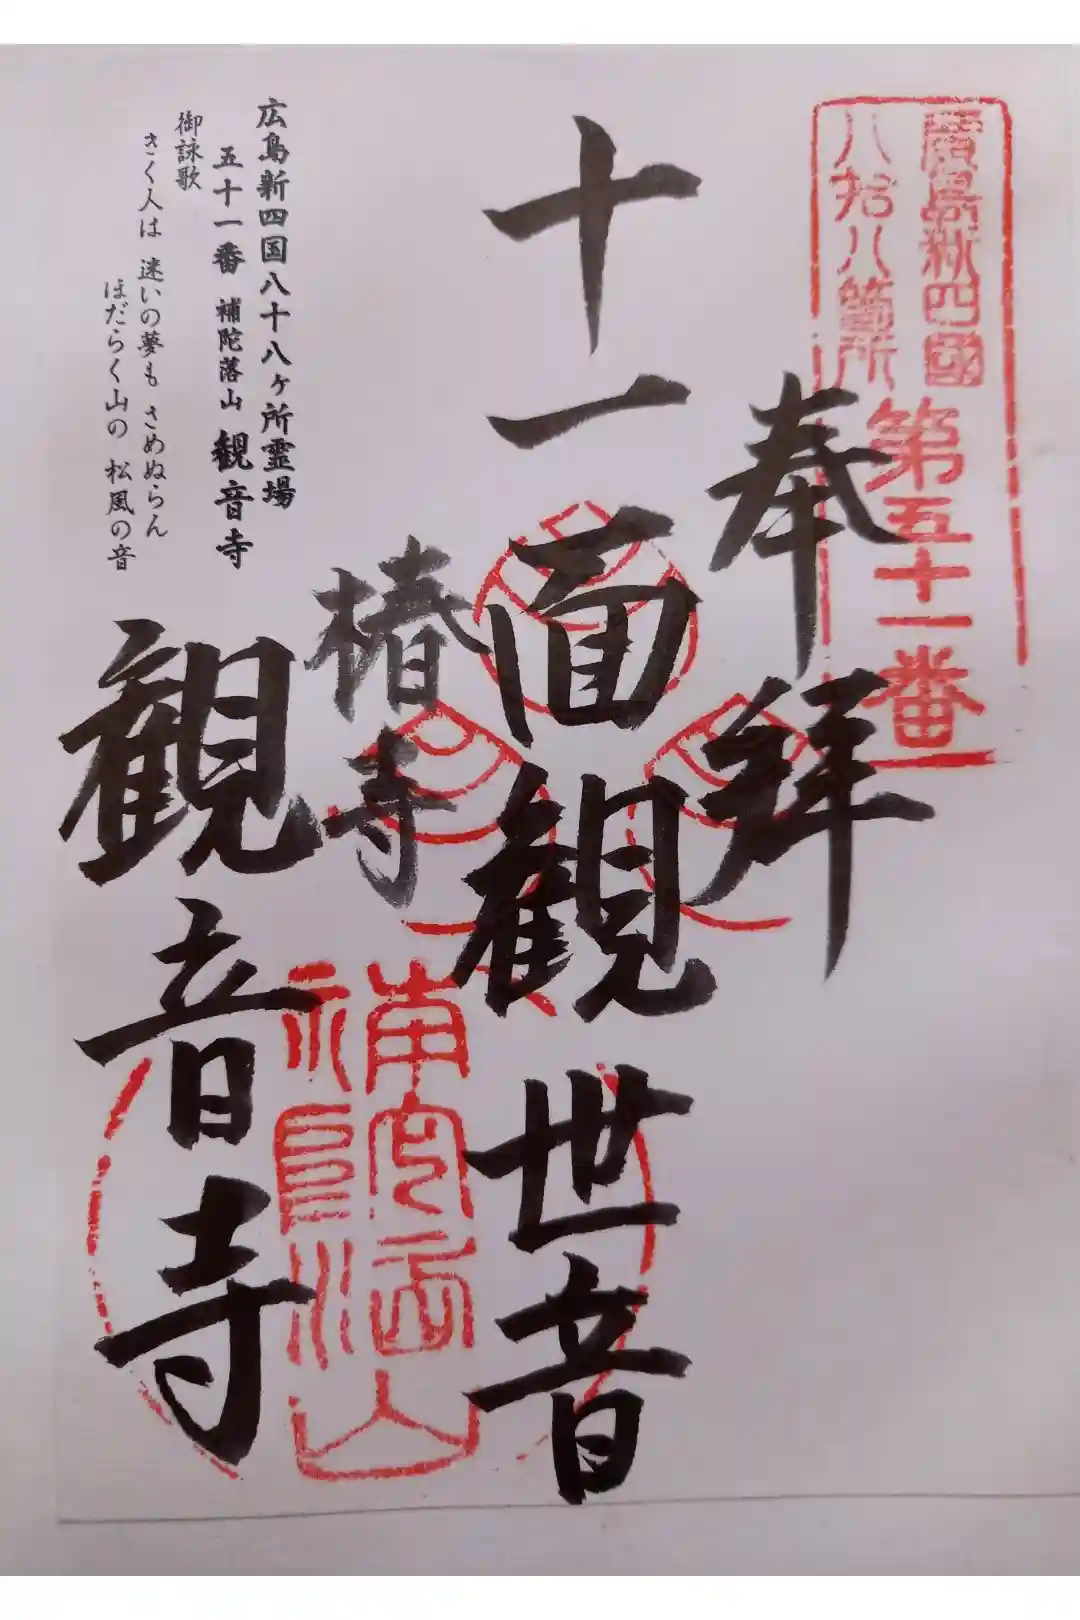 廣島新四國
八拾八箇所
第五十一番
奉拝
十一面観世音
椿寺
観音寺
補陀落山
広島新四国八十八ヶ所霊場
五十一番 補陀落山 観音寺
御詠歌
きく人は 迷いの夢も さめぬらん
ほだらく山の 松風の音